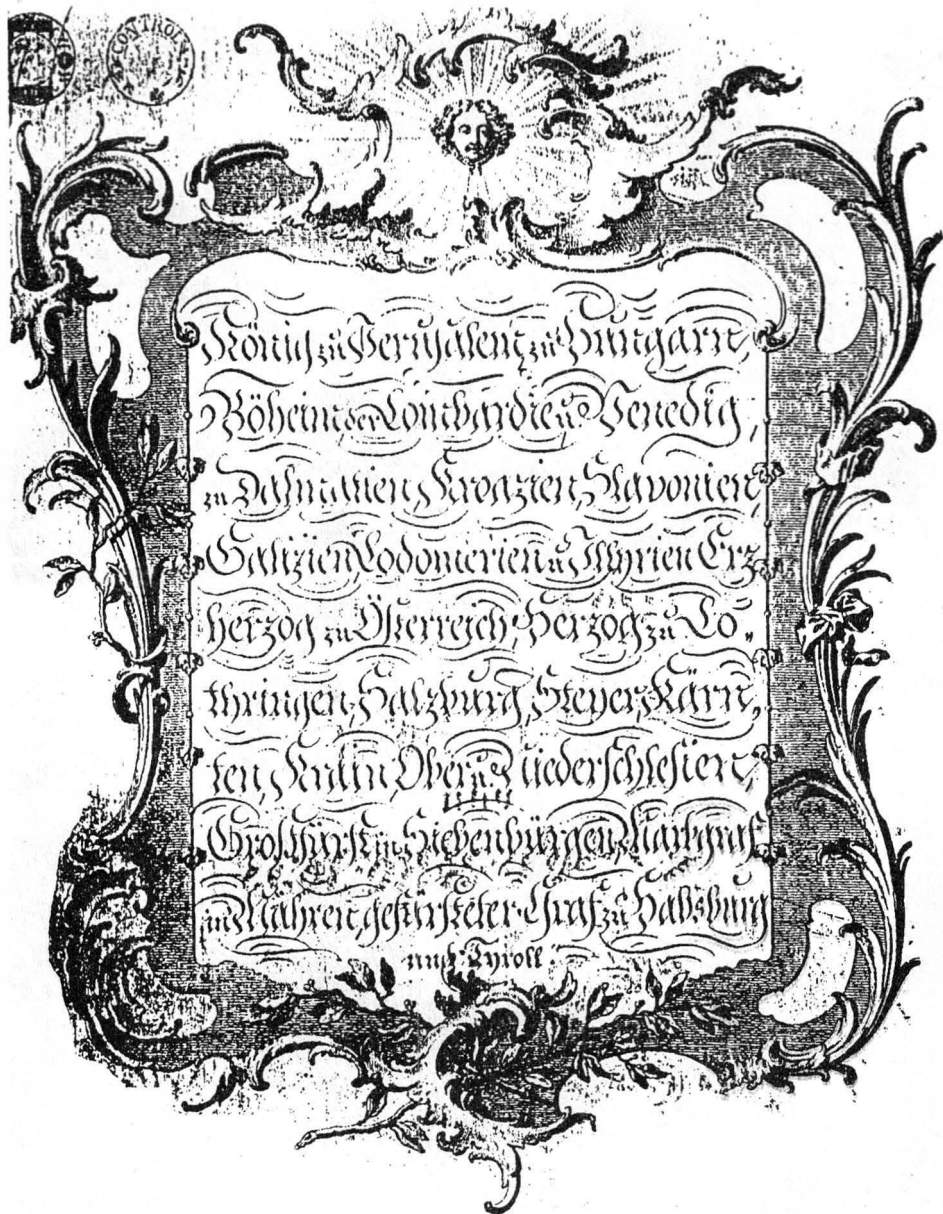 CONTROL
König zu Jerusalem, zu Hungarn,
Böheim, der Lombardie u. Venedig,
zu Dalmatien, Kroazien, Slavonien,
Galizien, Lodomerien u. Illyrien, Erz-
herzog zu Österreich, Herzog zu Lo-
thringen, Salzburg, Steyer, Kärn-
ten, Krain, Ober u. Niederschlesien,
Großfürst in Siebenbürgen, Markgraf
in Mähren, gefürsteter Graf zu Habsburg
und Tyroll.